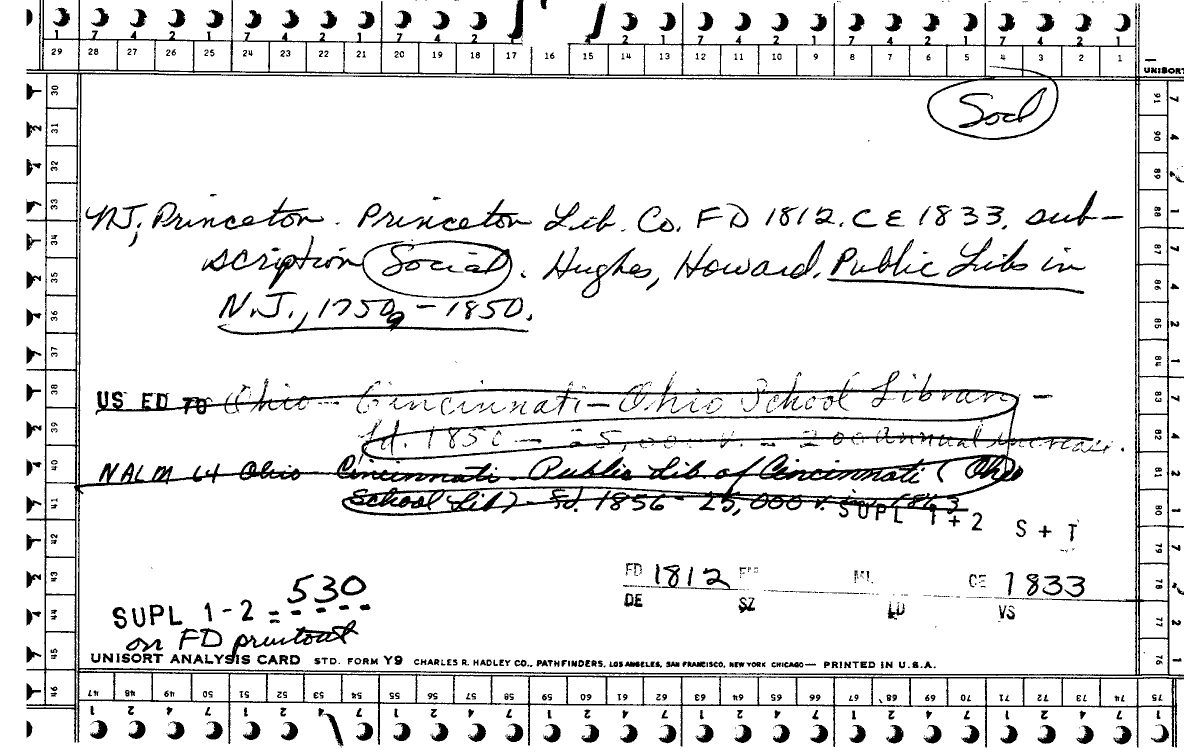 1 7 4 2 1 7 4 2 1 7 4 2 1 7 4 2 1 7 4 2 1 7 4 2 1
29 28 27 26 25 24 23 22 21 20 19 18 17 16 15 14 13 12 11 10 9 8 7 6 5 4 3 2 1
UNISORT
Socl
NJ, Princeton. Princeton Lib. Co. FD 1812. CE 1833. sub-
scription (Social). Hughes, Howard. Public Libs in
N.J., 1750-1850.
US ED TO Ohio - Cincinnati - Ohio School Library -
fd. 1856 - 25,000 v. - 200 annual increase.
NALM 64 Ohio Cincinnati - Public Lib. of Cincinnati (Ohio
School Lib) - fd. 1856 - 25,000 v. in 1863
SUPL 1+2 S + T
FD 1812 ML CE 1833
DE SZ LD VS
SUPL 1-2 = 530
on FD printout
UNISORT ANALYSIS CARD STD. FORM Y9 CHARLES R. HADLEY CO., PATHFINDERS, LOS ANGELES, SAN FRANCISCO, NEW YORK CHICAGO — PRINTED IN U.S.A.
46 47 48 49 50 51 52 53 54 55 56 57 58 59 60 61 62 63 64 65 66 67 68 69 70 71 72 73 74 75